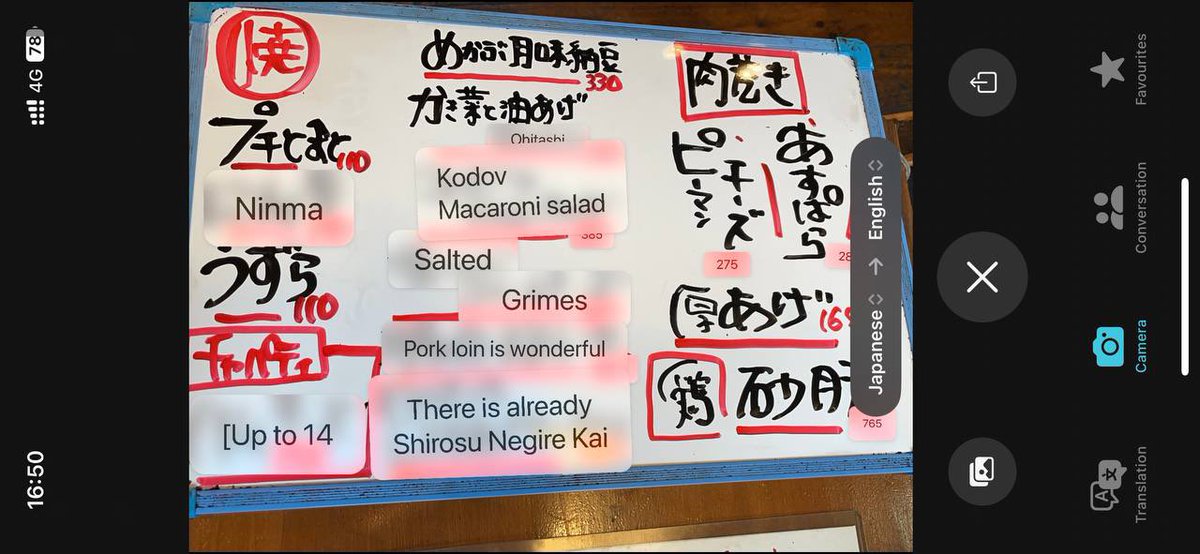 焼
プチとまと 110
Ninma
うずら 110
チャパティ
[Up to 14
めかぶ月味納豆
330
かき菜と油あげ
Ohitashi
Kodov
Macaroni salad
385
Salted
Grimes
Pork loin is wonderful
There is already
Shirosu Negire Kai
肉巻き
あすぱら
28
チーズ
ピーマン
275
厚あげ 165
鶏 砂肝
765
Japanese → English
16:50
4G 78
Favourites
Conversation
Camera
Translation